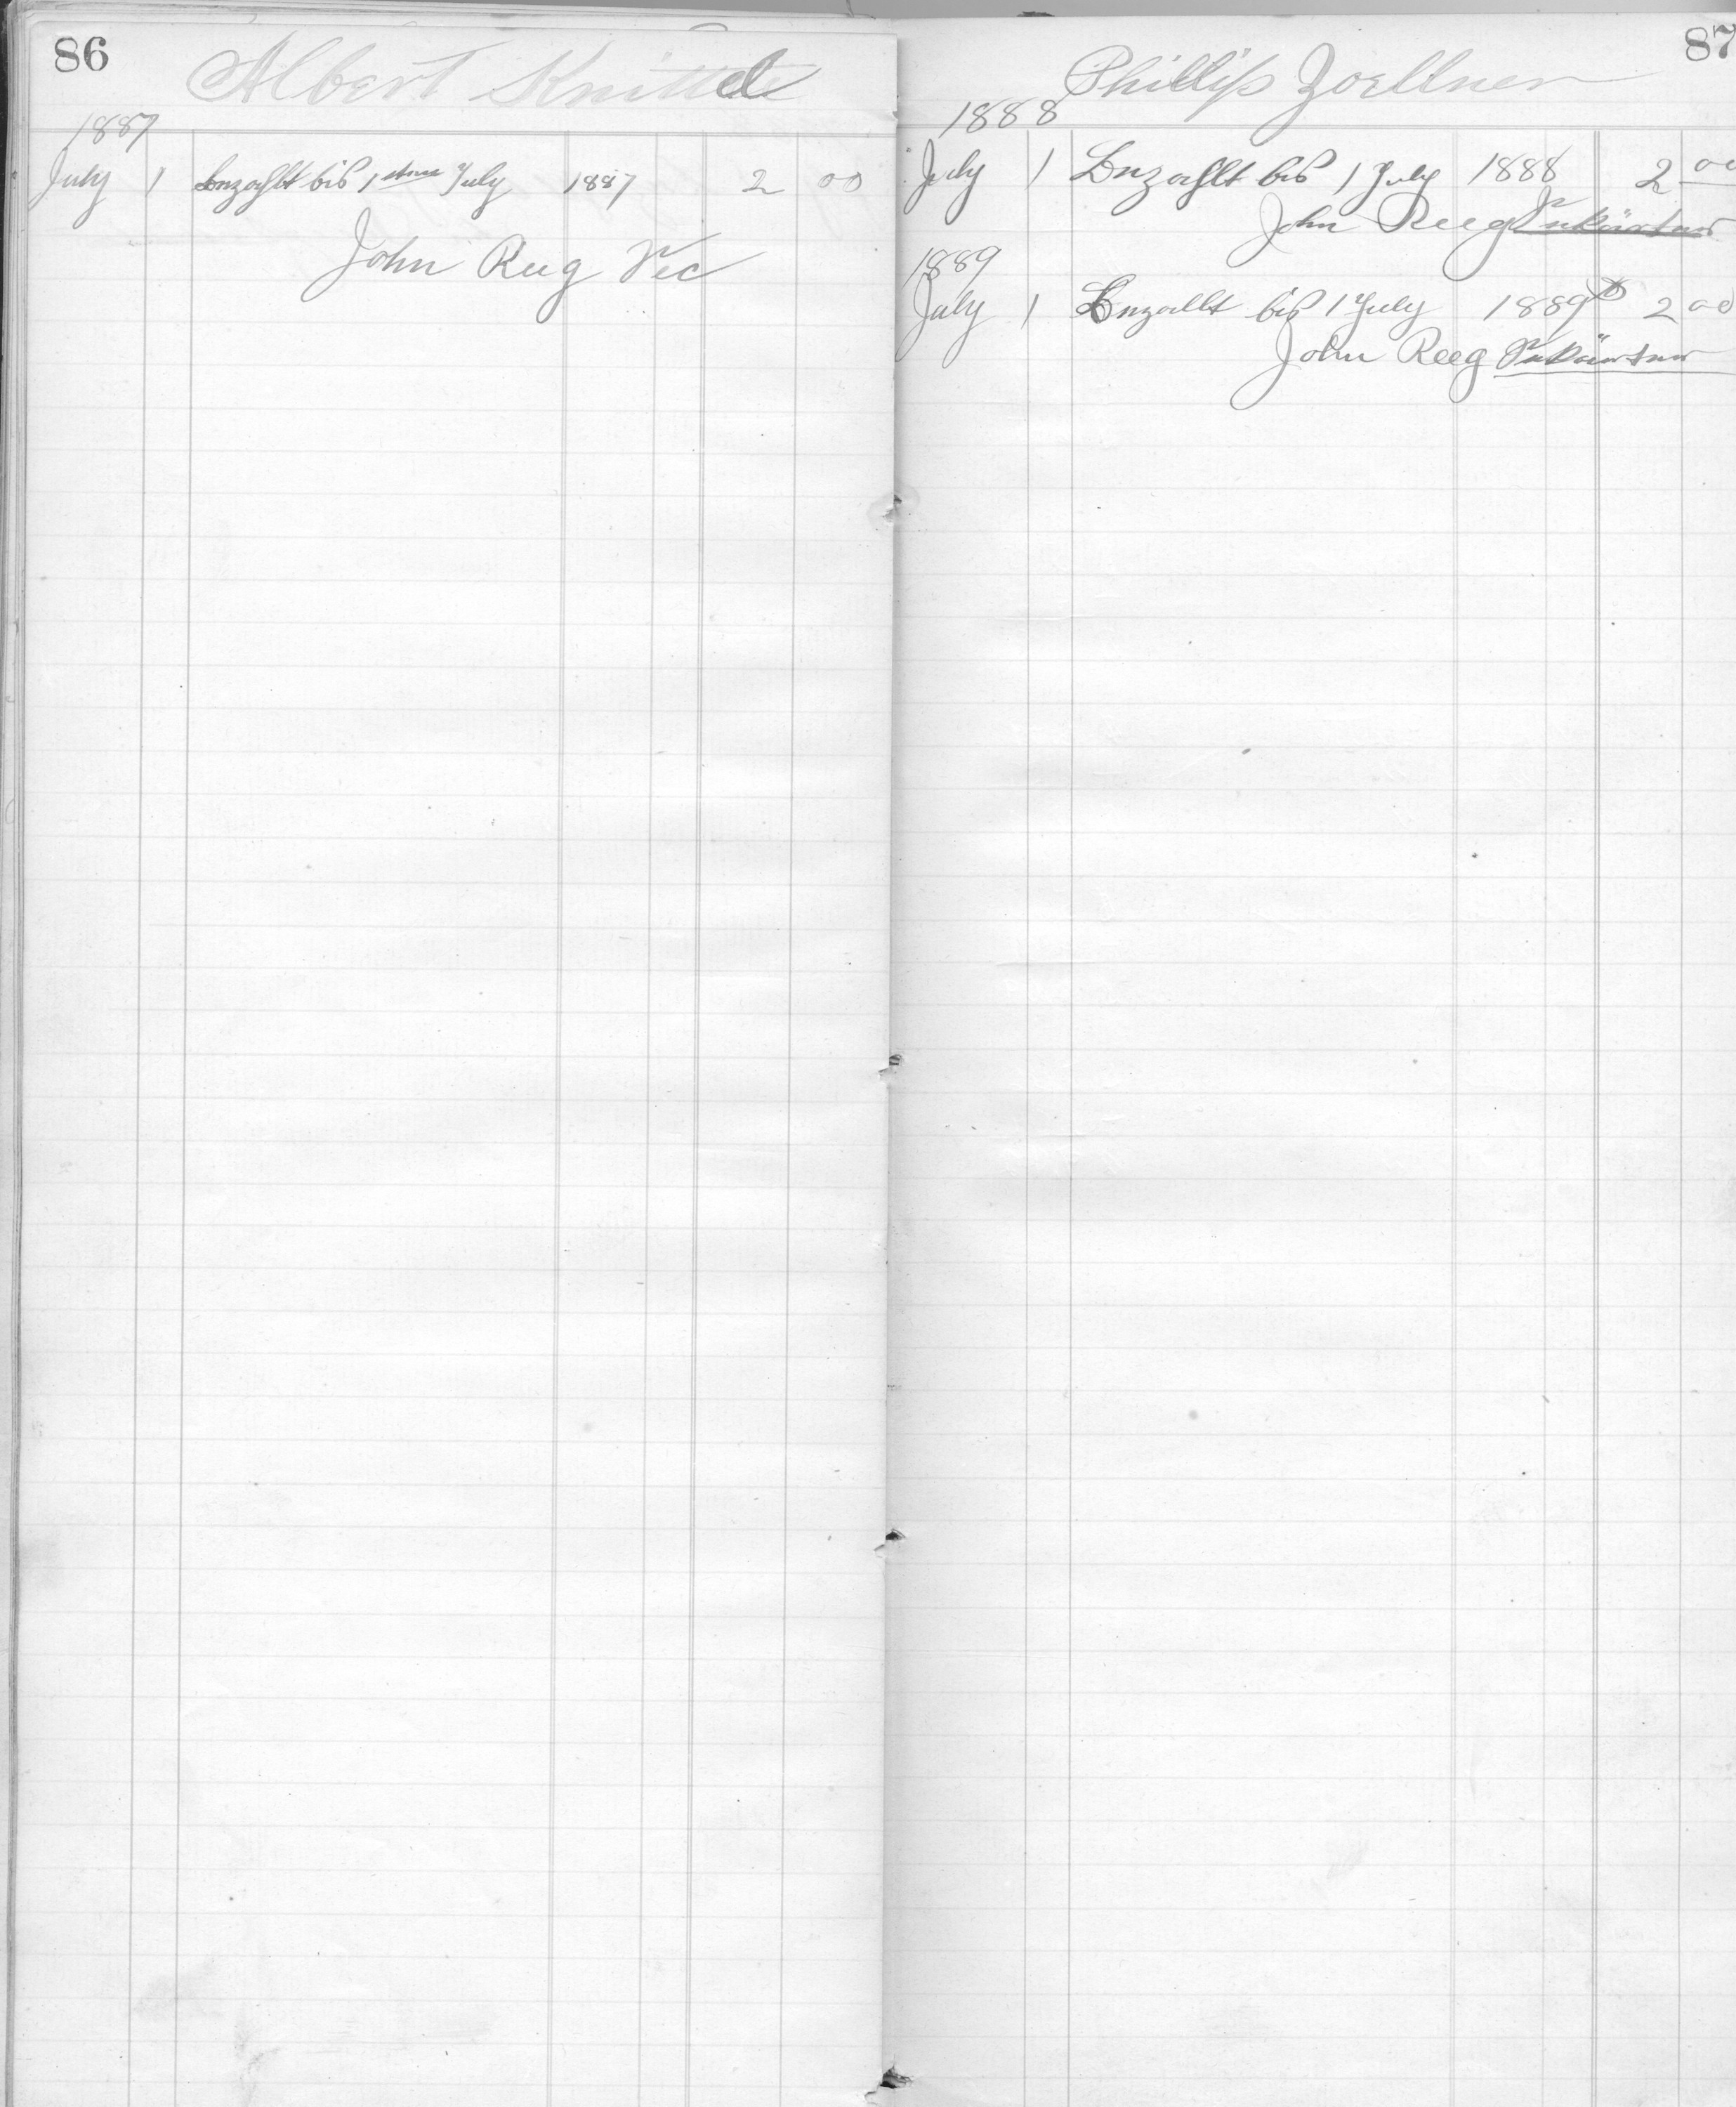 86
Albert Knittel
1887
July 1 Bezahlt bis 1sten July 1887 2 00
John Reeg Sec
87
Phillip Zoellner
1888
July 1 Bezahlt bis 1 July 1888 2 00
John Reeg Sekretär
1889
July 1 Bezallt bis 1 July 1889 2 00
John Reeg